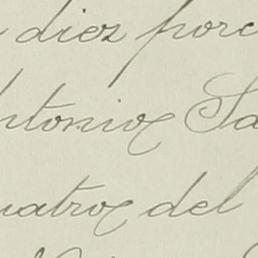 diez porc
Antonio Sa
uatro del